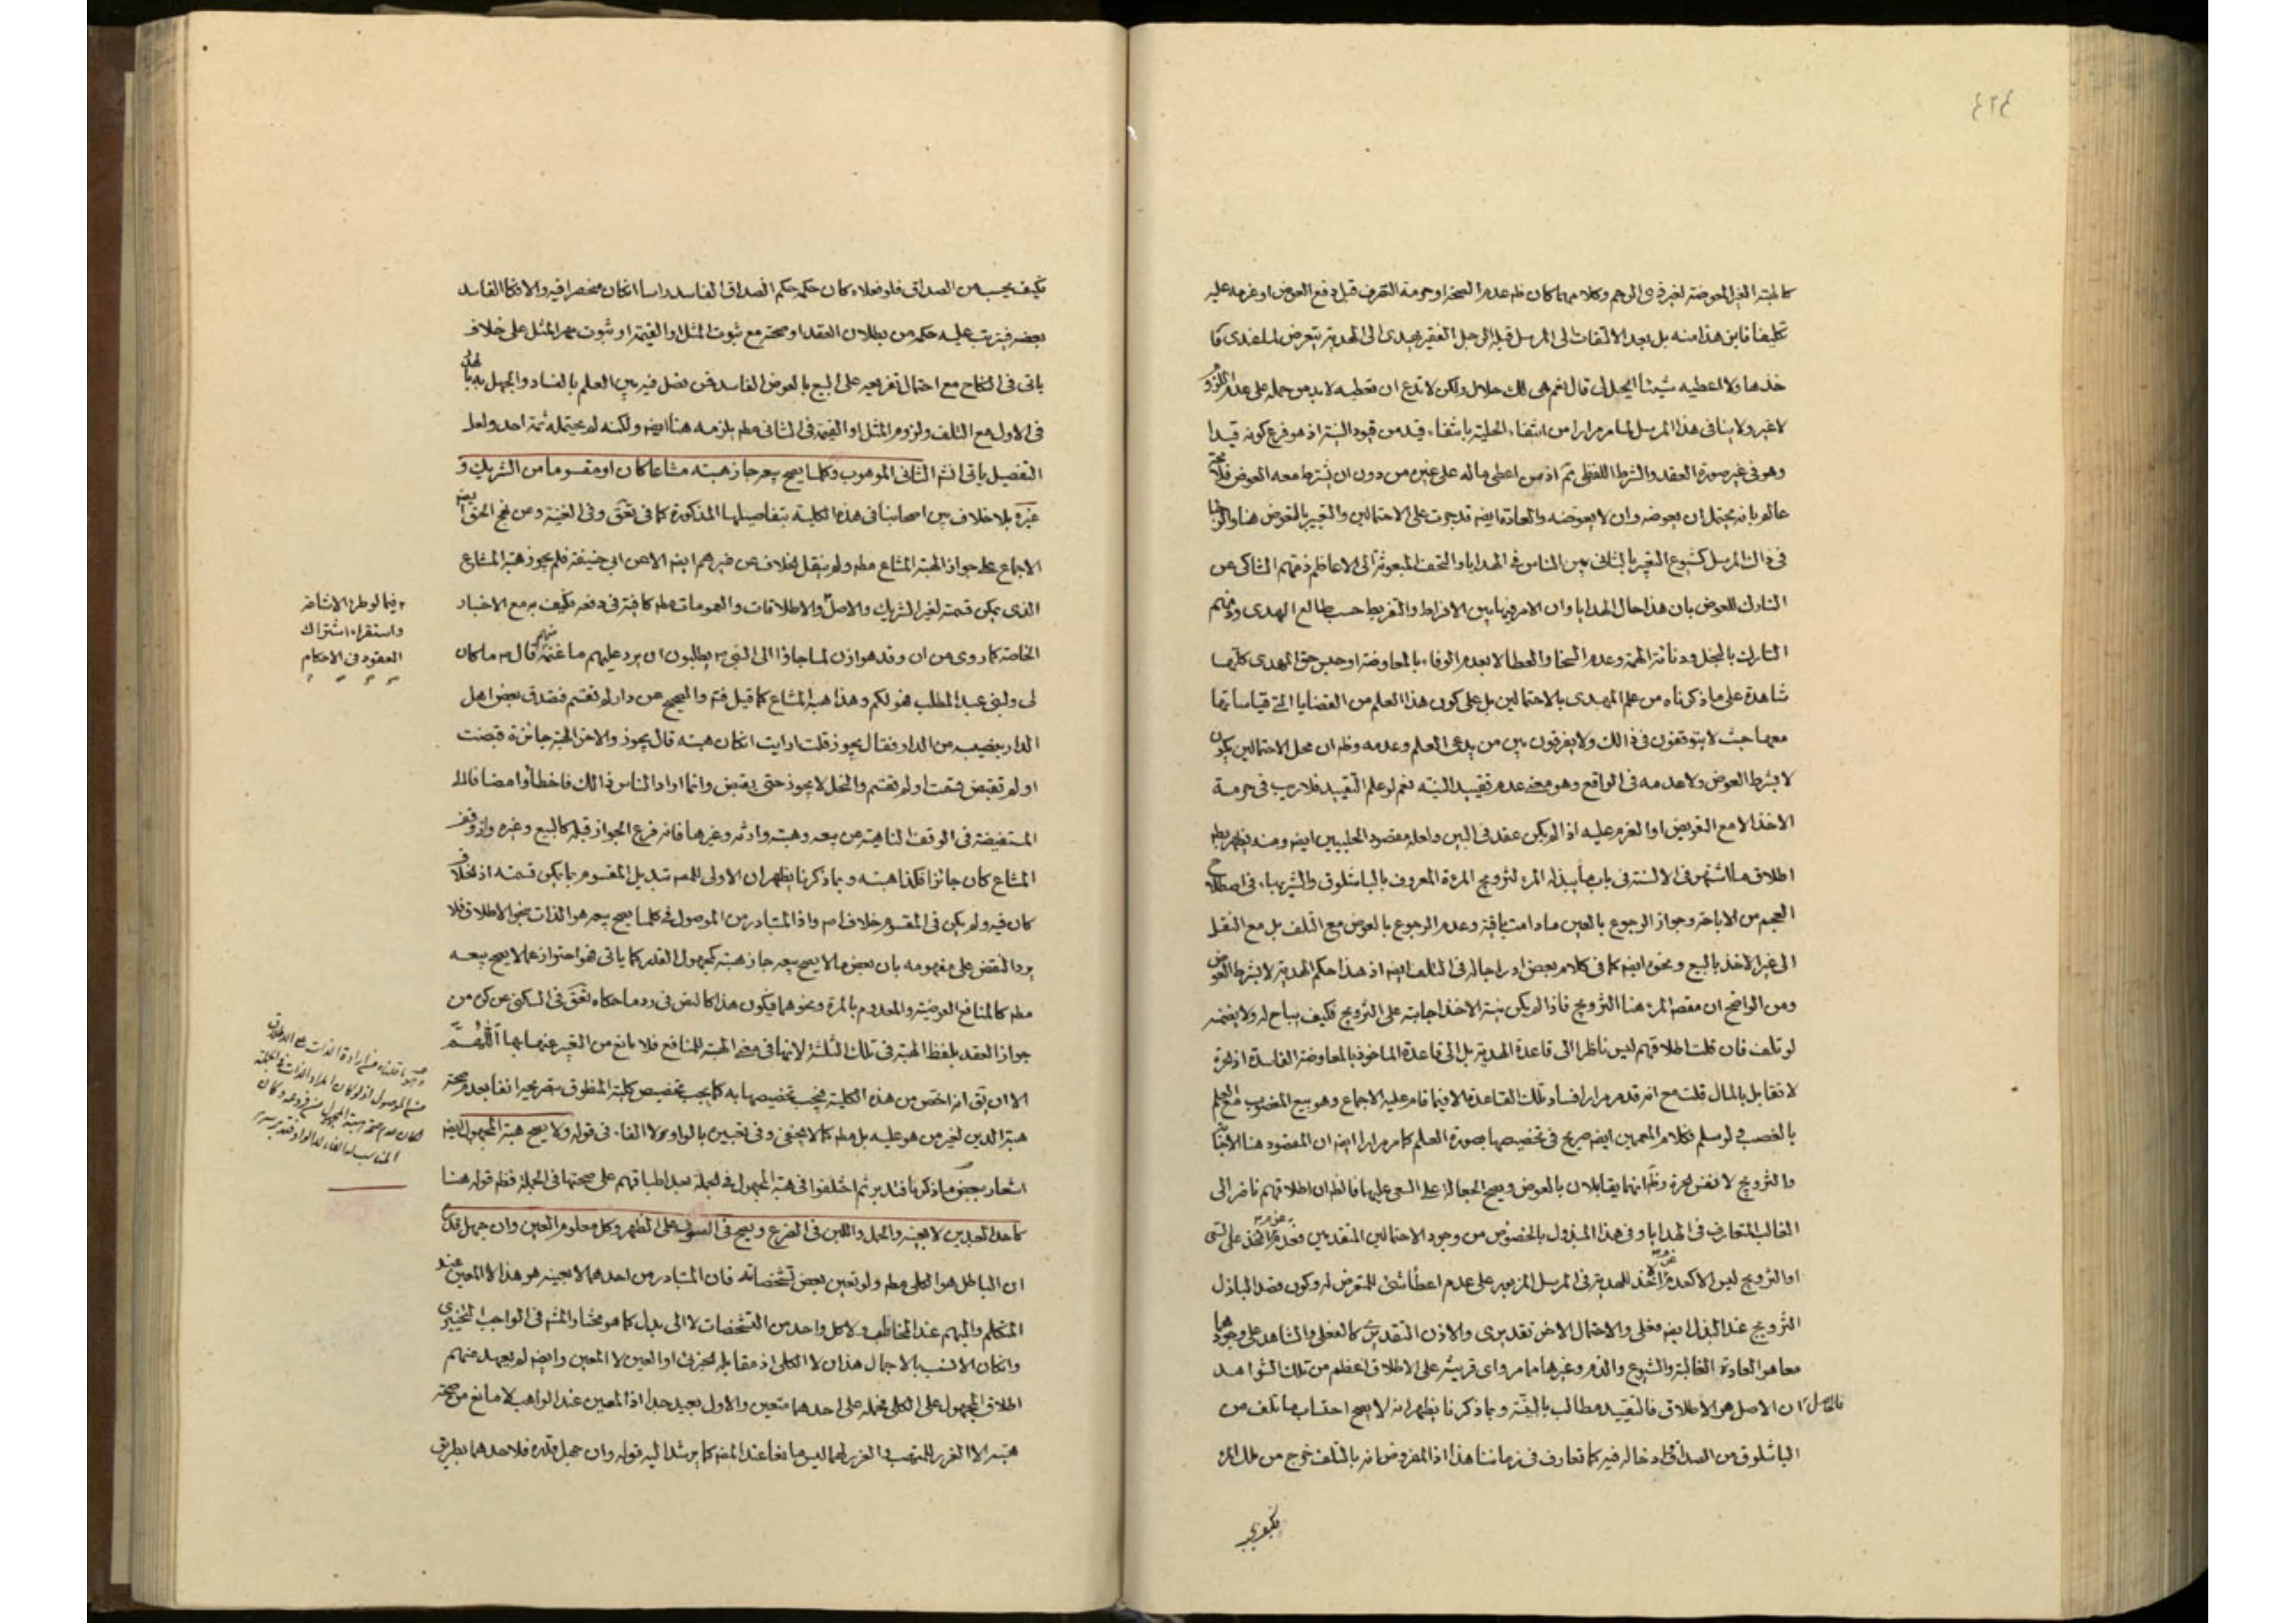 ٤٢٤
كالهبة الغير المعوضة لغير ذي الرحم وكلامهما كان ظم عدم الصحة او حرمة التصرف قبل دفع العوض او عزمه عليه
تكليفا فاين هذا منه بل بعد الالتفات الى المرسل قيل الرجل الفقير يهدى الى الهدية يتعرض لما عندى فا
خذها ولا اعطيه شيئا ايحل لى قال نعم هى لك حلال ولكن لا تدع ان تعطيه لابد من حمله على عدم
لا غير ولا ينافى هذا المرسل لما مر مرارا من انتفاء الحلية بانتفاء قيد من قيود النية اذ هو فرع كونه قيدا
وهو فى غير صورة العقد والشرط اللفظى ثم اذ من اعطى ماله على غيره من دون ان يشترط معه العوض
عالم بانه يحتمل ان يعوضه وان لا يعوضه والعادة ايضه قد جرت على الاحتمالين والتعبير بالتعرض هنا
فى ذاك المرسل كشيوع التعبير بالثانى بين الناس فى الهدايا والتحف المبعوثة الى الاعاظم ذمهم الشاكى عن
التارك للعوض بان هذا حال الهدايا وان الامر فيها بين الافراط والتفريط حسب طالع المهدى
التارك بالبخل ودنائة الهمة وعدم السخا والعطا لا بعدم الوفاء بالمعاوضة او حبس حق المهدى كلها
شاهدة على ما ذكرناه من علم المهدى بالاحتمالين بل على كون هذا العلم من القضايا التى قياساتها
معها حيث لا يتوقفون فى ذلك ولا يفرقون بين من يدعى العلم وعدمه وظم ان محل الاحتمالين يكون
لا بشرط العوض ولا عدمه فى الواقع وهو معنى عدم تقييد النية نعم لو علم التقييد فلا ريب فى حرمة
الاخذ الا مع التعويض او العزم عليه اذا لم يكن عقد فى البين ولعله مقصود الحلبيين ايضه ومنه يظهر
اطلاق ما اشتهر فى الالسنة فى باب ما يبذله المرء لتزويج المرءة المعروف بالباشلوق والشيربهاء فى اصطلاح
العجم من الاباحة وجواز الرجوع بالعين مادامت باقية وعدم الرجوع بالعوض مع التلف بل مع النقل
الى غير الاخذ بالبيع ونحوه ايضه كما فى كلام بعض ادراجا له فى التلف ايضه اذ هذا حكم الهدية لا بشرط العوض
ومن الواضح ان مقصد المرء هنا التزويج فاذا لم يكن بنية الاخذ اجابته على التزويج فكيف يباح له ولا يضمنه
لو تلف فان قلت اطلاقهم ليس ناظرا الى قاعدة الهدية بل الى قاعدة الماخوذ بالمعاوضة الفاسدة اذ الحرة
لا تقابل بالمال قلت مع انه قد مر مرارا فساد تلك القاعدة الا فيما قام عليه الاجماع وهو بيع المغصوب مع العلم
بالغصب لو سلم فكلام المعممين ايضه صريح فى تخصيصها بصورة العلم كما مر مرارا ايضه ان المقصود هنا
والتزويج لا نفس الحرة وظم انهما يقابلان بالعوض ويصح الجعالة على السعى عليها فالظم ان اطلاقهم ناظر الى
الغالب المتعارف فى الهدايا وفى هذا المبذول بالخصوص من وجود الاحتمالين المتقدمين فعدم الاخذ على
او التزويج ليس الا كعدم الاخذ للهدية فى المرسل المزبور على عدم اعطا شئ للمتعرض له وكون قصد الباذل
التزويج عند البذل ايضه فعلى والاحتمال الاخر تقديرى والاذن التقديرى كالفعلى والشاهد على وجودهما
معا هو العادة الغالبة والشيوع والذم وغيرها مما مر واى قرينة على الاطلاق اعظم من تلك الشواهد
ان الاصل هو الاطلاق فالتقييد مطالب بالبينة وبما ذكرنا يظهر انه لا يصح احتساب ما تلف من
الباشلوق من الصداق وادخاله فيه كما تعارف فى زماننا هذا اذ المفروض انه بالتلف خرج من ملك المرء
فكيف يجب
فكيف يجب من الصداق فلو فعلاه كان حكمه حكم الصداق الفاسد راسا ان كان منحصرا فيه والا فكالفاسد
بعضه فيترتب عليه حكمه من بطلان العقد او صحته مع ثبوت المثل او القيمة او ثبوت مهر المثل على خلاف
ياتى فى النكاح مع احتمال تفريعه على البيع بالعوض الفاسد فمن فصل فيه بين العلم بالفساد والجهل به
فى الاول مع التلف ولزوم المثل او القيمة فى الثانى مطم يلزمه هنا ايضه ولكنه لم يحتمله ثمة احد ولعل
التفصيل ياتى انشم الثانى الموهوب وكلما يصح بيعه جاز هبته مشاعا كان او مقسوما من الشريك و
غيره بلا خلاف بين اصحابنا فى هذه الكلية بتفاصيلها المذكورة كما فى تعق وفى الغنية وعن نهج الحق ايضه
الاجماع على جواز الهبة المشاع مطم ولم ينقل الخلاف عن غيرهم ايضه الا عن ابى حنيفة فلم يجوز هبة المشاع
الذى يمكن قسمته لغير الشريك والاصل والاطلاقات والعمومات مطم كافية فى دفعه فكيف به مع الاخبار
الخاصة كما روى من ان وفد هوازن لما جاؤا الى النبى ص يطلبون ان يرد عليهم ما غنمه منهم قال ص ما كان
لى ولبنى عبد المطلب فهو لكم وهذا هبة المشاع كما قيل فتم والصحيح عن دار لم تقسم فتصدق بعض اهل
الدار بنصيبه من الدار فقال يجوز قلت ارايت ان كان هبته قال يجوز والاخر الهبة جائزة قبضت
او لم تقبض قسمت او لم تقسم والنحل لا يجوز حتى يقبض وانما اراد الناس ذلك فاخطأوا مضافا الى
المستفيضة فى الوقف الناهية عن بيعه وهبته وارثه وغيرها فانه فرع الجواز قبله كالبيع وغيره واذ وقف
المشاع كان جائزا فكذا هبته وبما ذكرنا يظهر ان الاولى للمصه تبديل المقسوم بما يمكن قسمته اذ الخلاف
كان فيه ولم يكن فى المقسوم خلاف اصم واذ المتبادر من الموصول فى كلما يصح بيعه هو الذات بنحو الاطلاق فلا
يرد النقض على مفهومه بان بعض ما لا يصح بيعه جاز هبته كمجهول القدر كما ياتى فهو احتراز عما لا يصح بيعه
مطم كالمنافع العرضية والمعدوم بالمرة ونحوهما فيكون هذا كالنص فى رد ما حكاه تعق فى السكنى عن كره من
جواز العقد بلفظ الهبة فى تلك الثلثة لانها فى معنى الهبة للمنافع فلا مانع من التعبير عنها بها اللهم
الا ان يقى انه اخص من هذه الكلية فيجب تخصيصها به كما يجب تخصيص كلية المنطوق بتصريحه انفا بعدم صحة
هبة الدين لغير من هو عليه بل مطم كما لا يخفى وفى تعبيره بالواو لا الفاء فى قوله ولا يصح هبة المجهول ايضه
اشعار ببعض ما ذكرنا فتدبر ثم اختلفوا فى هبة المجهول فى الجملة بعد اطباقهم على صحتها فى الجملة فظم قوله هنا
كاحد العبدين لا بعينه والحمل واللبن فى الضرع ويصح فى الصوف على الظهر وكل معلوم العين وان جهل قدره
ان الباطل هو الكلى مطم ولو تعين بعض تشخصاته فان المتبادر من احدهما لا بعينه هو هذا لا المعين عند
المتكلم والمبهم عند المخاطب ولا كل واحد من التشخصات لا الى بدل كما هو مختار المشه فى الواجب التخييرى
وان كان الانسب بالاجمال هذان لا الكلى اذ مقابله الجزئى او العين لا المعين وايضه لم يعهد منهم
اطلاق المجهول على الكلى فحمله على احدهما متعين والاول بعيد جدا اذ المعين عند الواهب لا مانع من صحة
هبته الا الغرر للمتهب والغرر لهما ليس مانعا عند المصه كما يرشد اليه قوله وان جهل قدره فلاحدهما بطريق
فيما لو طرء الاشاعة
واستقراء اشتراك
العقود فى الاحكام